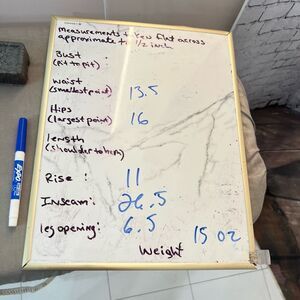 Measurements taken flat across
approximate to 1/2 inch
Bust :
(Pit to Pit)
waist
(smallest point) 13.5
Hips
(largest point) 16
length
(shoulder to hem)
Rise : 11
Inseam: 26.5
leg opening: 6.5
Weight 15 oz
EXPO